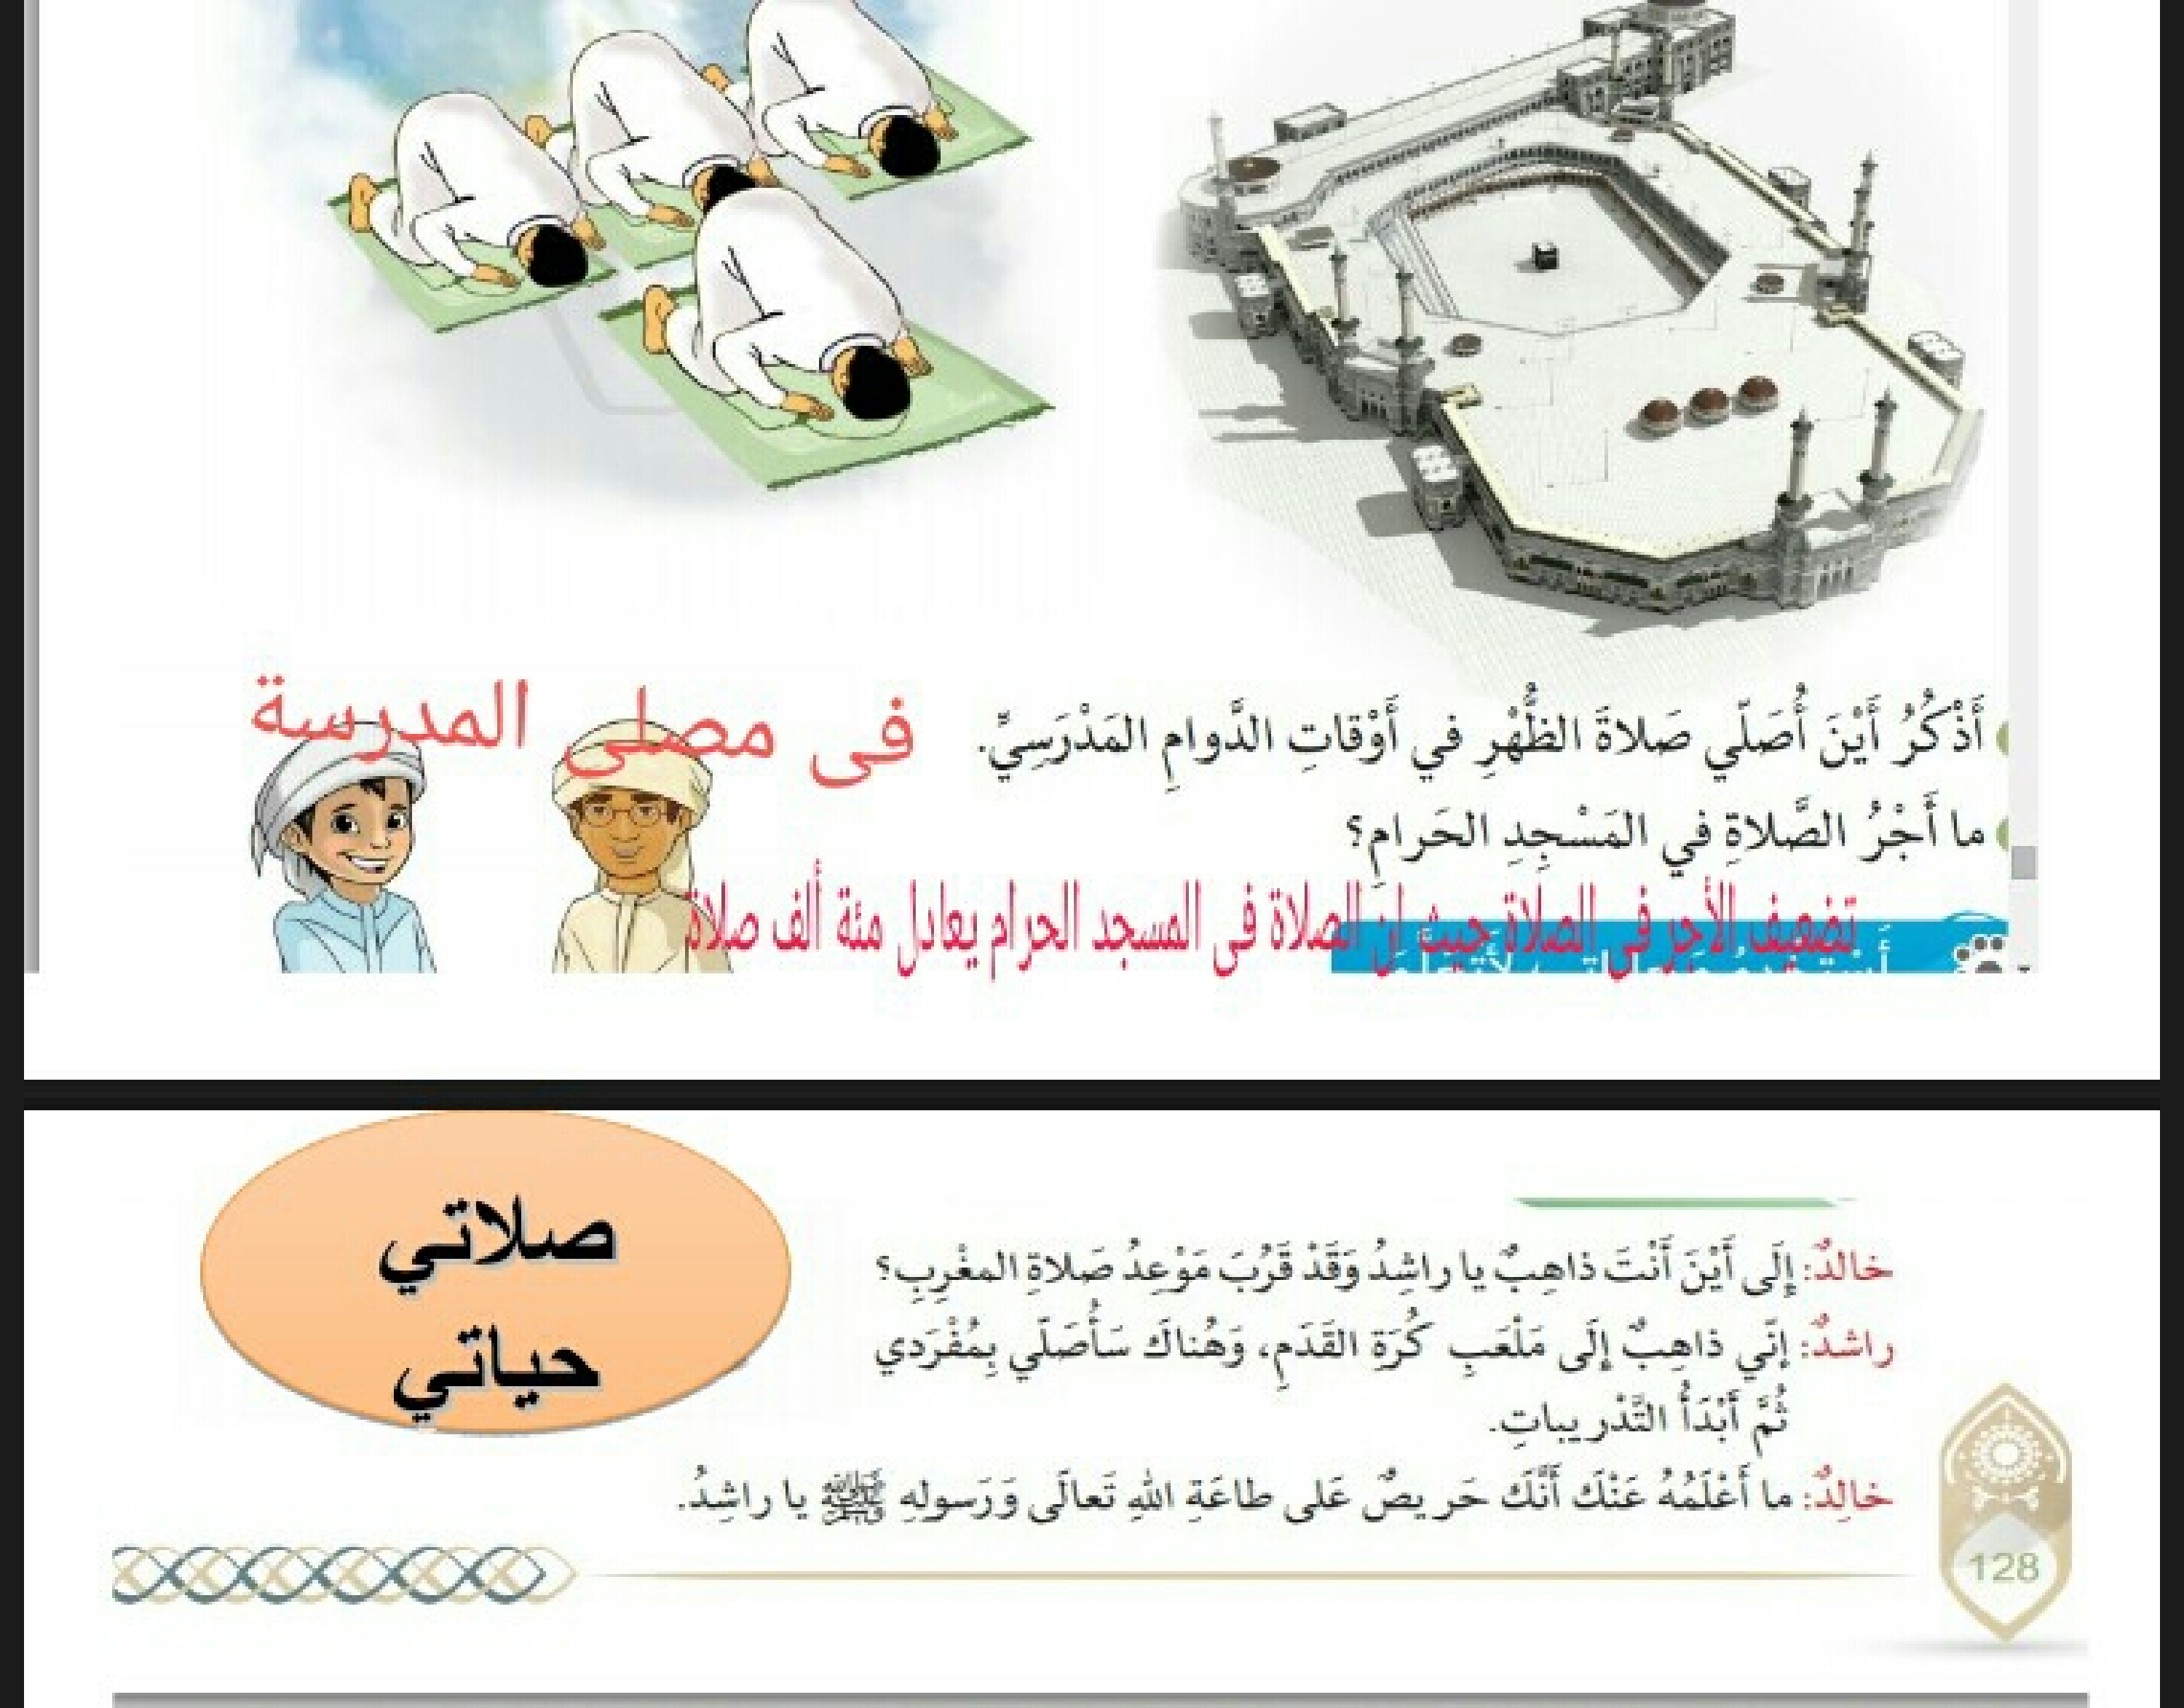 أَذْكُرُ أَيْنَ أُصَلّي صَلاةَ الظُّهْرِ في أَوْقاتِ الدَّوامِ المَدْرَسِيِّ.
فى مصلى المدرسة
ما أَجْرُ الصَّلاةِ في المَسْجِدِ الحَرامِ؟
تضعيف الأجر في الصلاة حيث ان الصلاة فى المسجد الحرام يعادل مئة ألف صلاة
صلاتي
حياتي
خالدٌ: إِلَى أَيْنَ أَنْتَ ذاهِبٌ يا راشِدُ وَقَدْ قَرُبَ مَوْعِدُ صَلاةِ المغْرِبِ؟
راشدٌ: إِنّي ذاهِبٌ إِلَى مَلْعَبِ كُرَةِ القَدَمِ، وَهُناكَ سَأُصَلّي بِمُفْرَدي
ثُمَّ أَبْدَأُ التَّدْريباتِ.
خالِدٌ: ما أَعْلَمُهُ عَنْكَ أَنَّكَ حَريصٌ عَلى طاعَةِ اللهِ تَعالَى وَرَسولِهِ ﷺ يا راشِدُ.
128